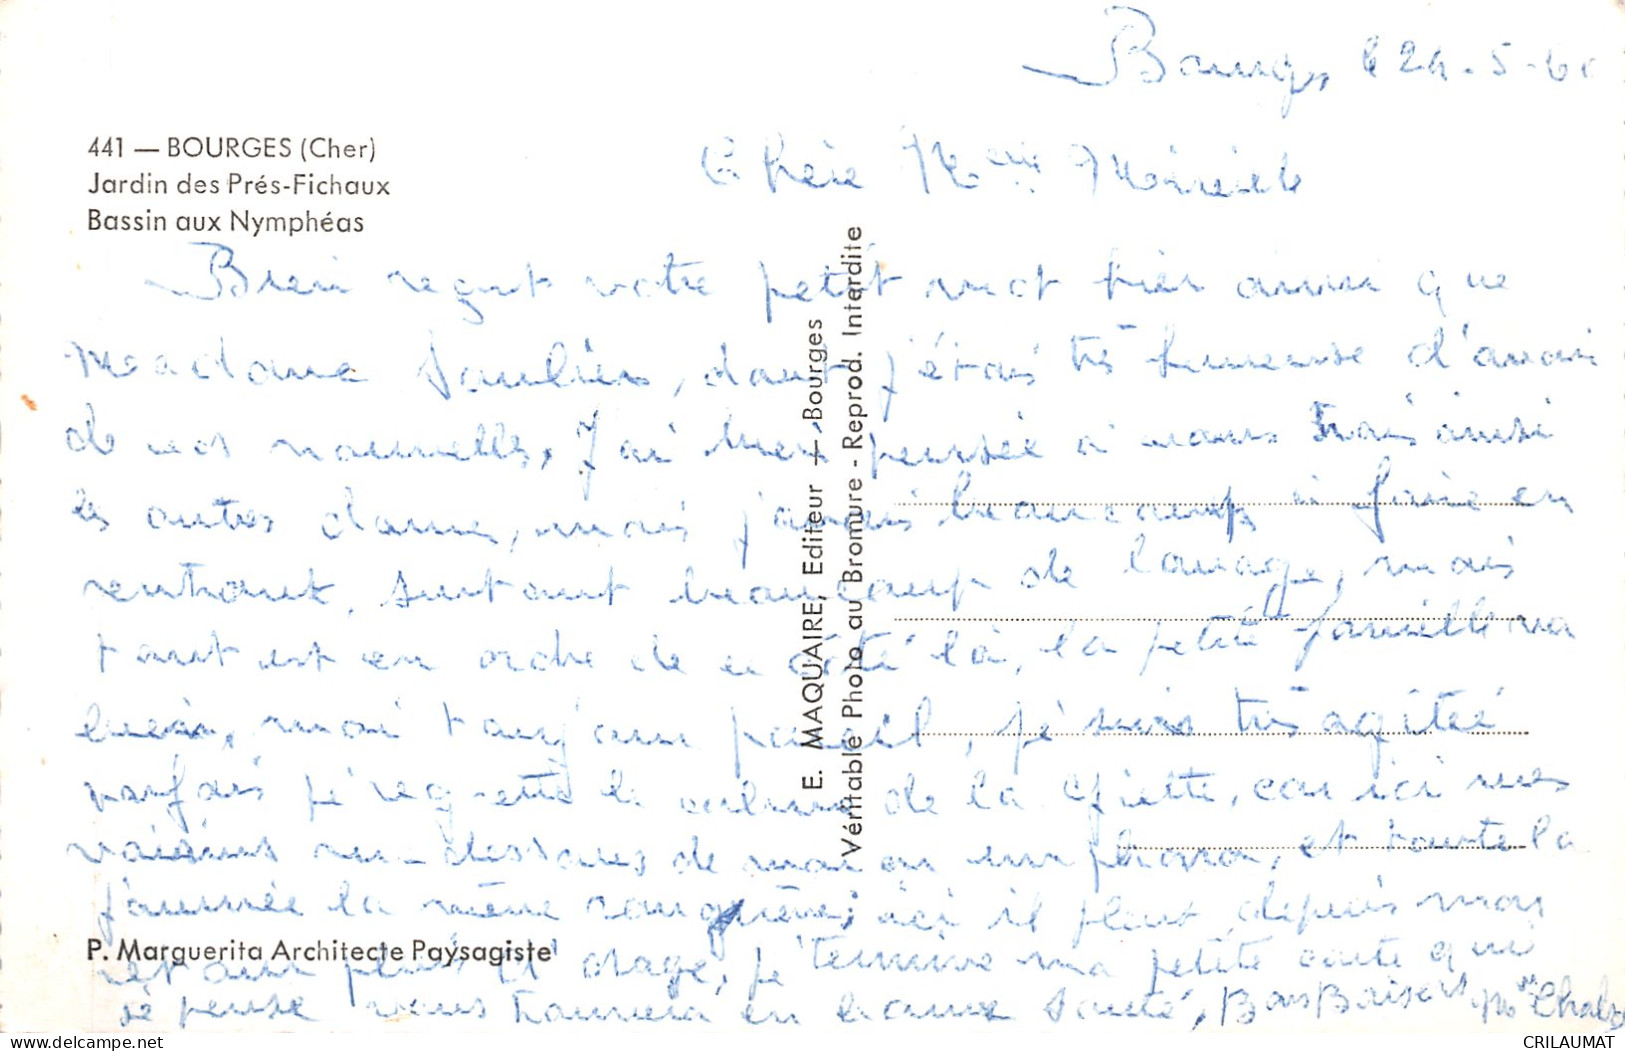 Bourges le 24-5-60
441 — BOURGES (Cher)
Jardin des Prés-Fichaux
Bassin aux Nymphéas
Chère Mme
Bien reçut votre petit mot hier ainsi que
Madame Saulier, dont j'étais très heureuse d'avoir
de vos nouvelles, J'ai bien pensée à vous trois ainsi
les autres dames, mais j'avais beaucoup à faire en
rentrant, surtout beaucoup de lavage, mais
tout est en ordre de ce côté là, la petite famille va
bien, moi toujours pareil, je suis très agitée
parfois je regrette le calme de la, car ici mes
voisins au-dessous de moi on un phono, et toute la
journée la même rangaine, ici il pleut depuis mon
retour pluie et orage, je termine ma petite carte qui
je pense vous trouvera en bonne santé, Bons Baisers Mme
E. MAQUAIRE, Editeur - Bourges
Véritable Photo au Bromure - Reprod. Interdite
P. Marguerita Architecte Paysagiste
delcampe.net
CRILAUMAT